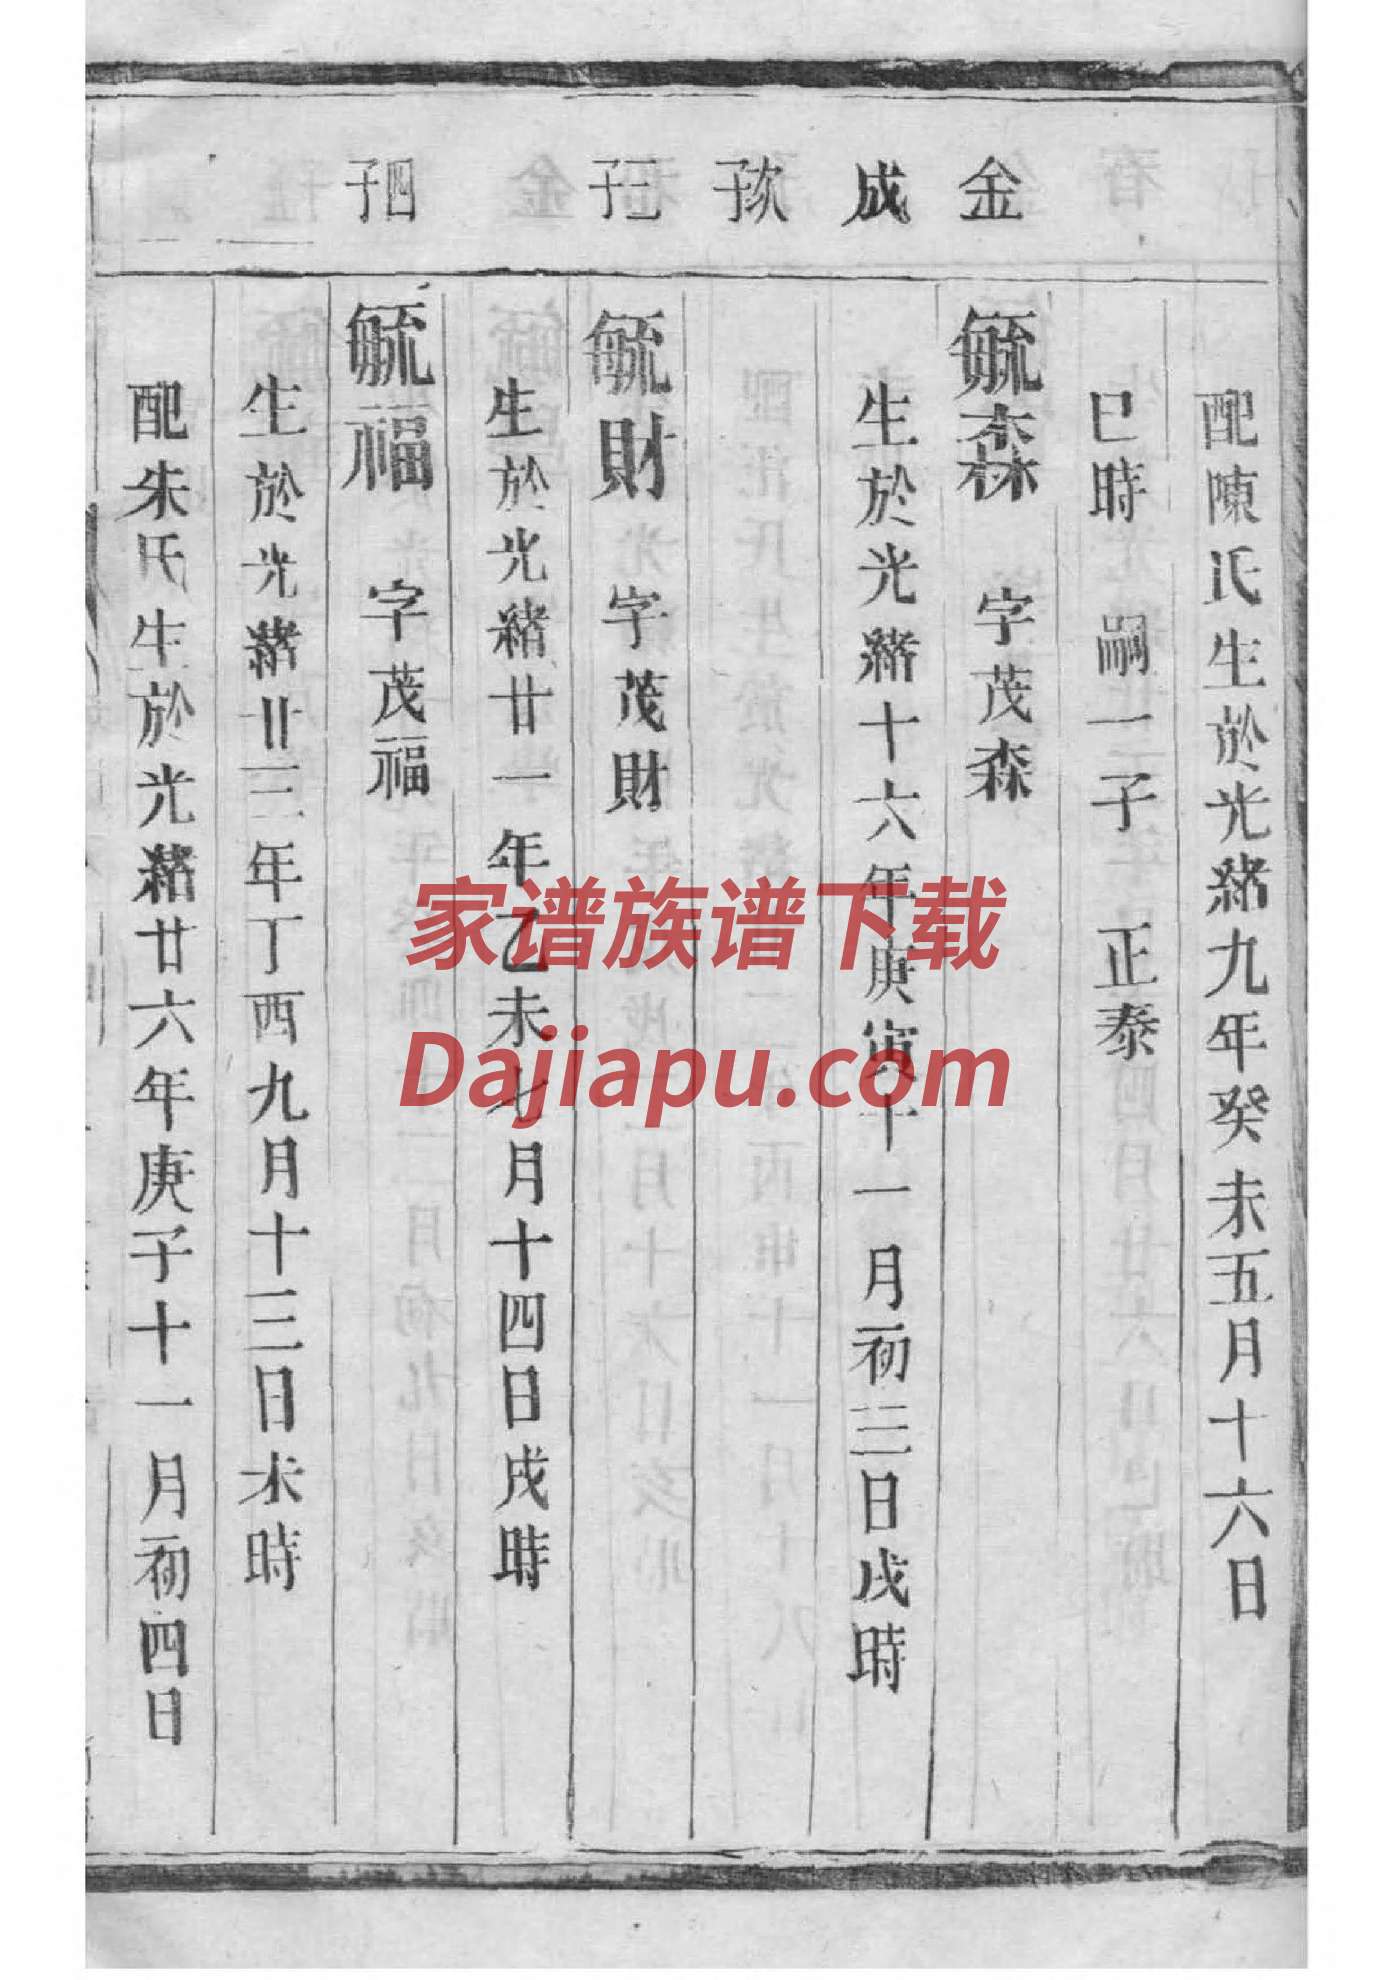 金
成
次子
三子
四子
配陳氏生於光緒九年癸未五月十六日
巳時 嗣一子 正泰
毓森 字茂森
生於光緒十六年庚寅十一月初三日戌時
毓財 字茂財
生於光緒廿一年乙未七月十四日戌時
毓福 字茂福
生於光緒廿三年丁酉九月十三日未時
配朱氏生於光緒廿六年庚子十一月初四日
家谱族谱下载
Dajiapu.com